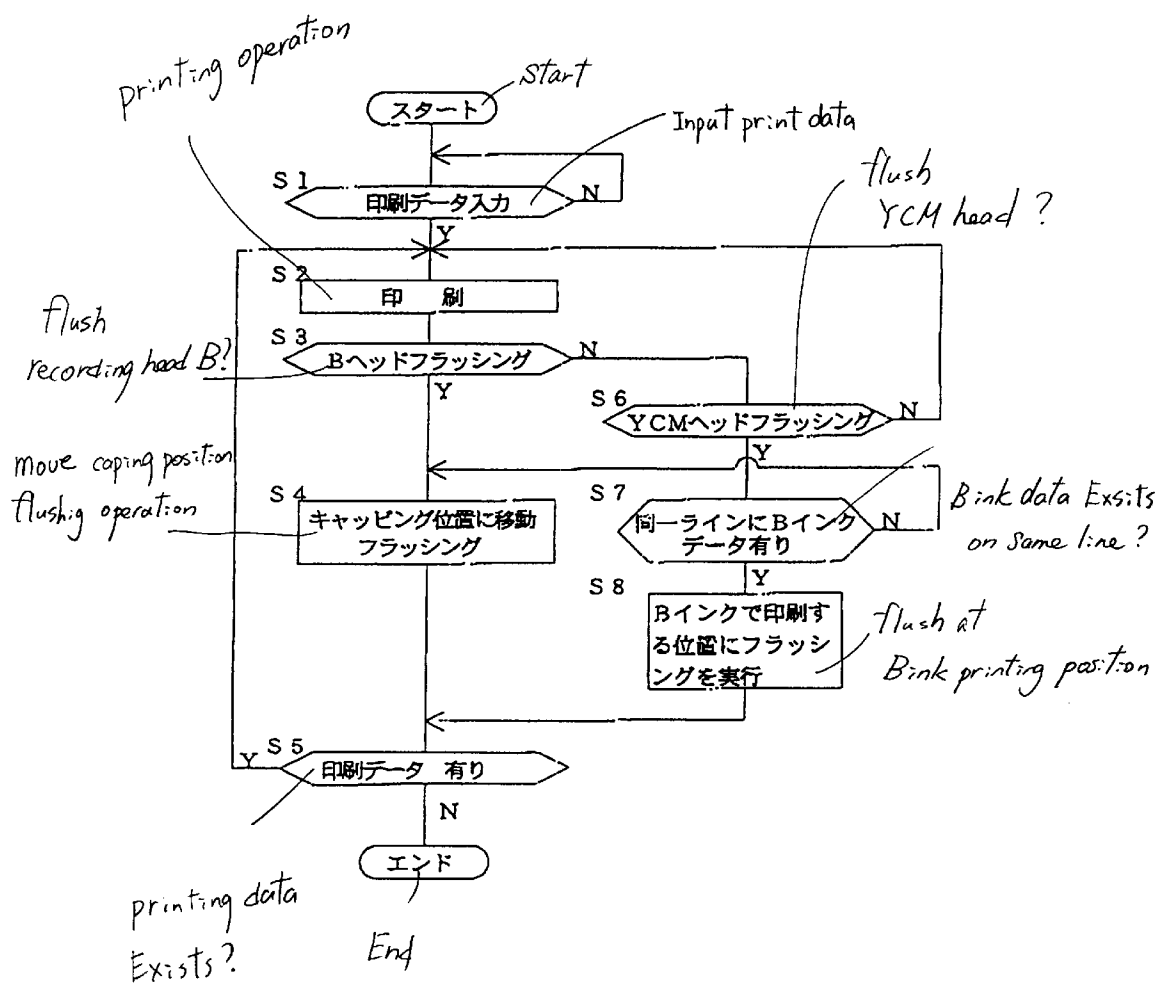 printing operation
Start
スタート
Input print data
S1
印刷データ入力
N
flush
YCM head ?
Y
S2
印 刷
flush
recording head B?
S3
Bヘッドフラッシング
N
Y
S6
YCMヘッドフラッシング
N
Y
move coping position
flushig operation
S4
キャッピング位置に移動
フラッシング
S7
同一ラインにBインク
データ有り
N
Y
Bink data Exsits
on same line ?
S8
Bインクで印刷す
る位置にフラッシ
ングを実行
flush at
Bink printing position
Y
S5
印刷データ 有り
N
エンド
printing data
Exists?
End